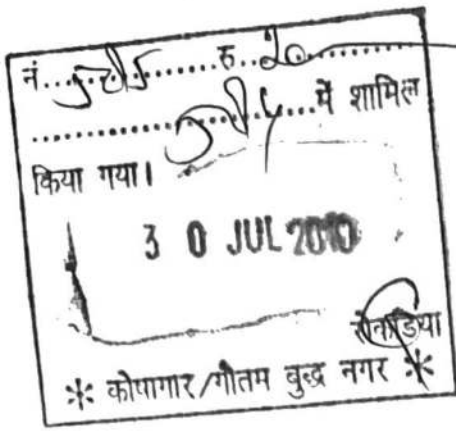 नं............ रु..20............
....................में शामिल
किया गया।
3 0 JUL 2010
रोकड़िया
कोषागार/गौतम बुद्ध नगर